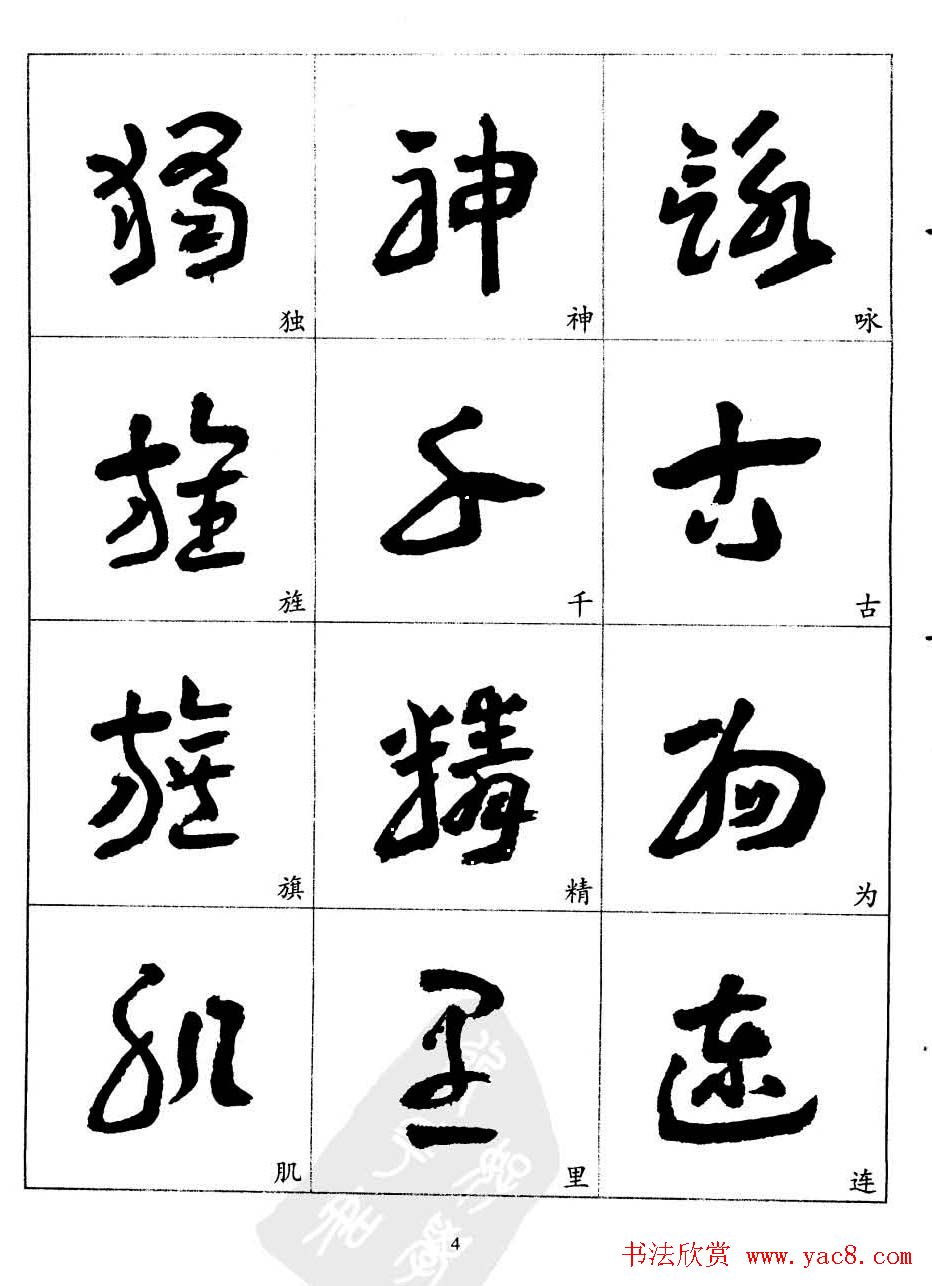 獨 神 詠
独 神 咏
旌 千 古
旌 千 古
旗 精 为
旗 精 为
肌 里 連
肌 里 连
4
书法欣赏 www.yac8.com